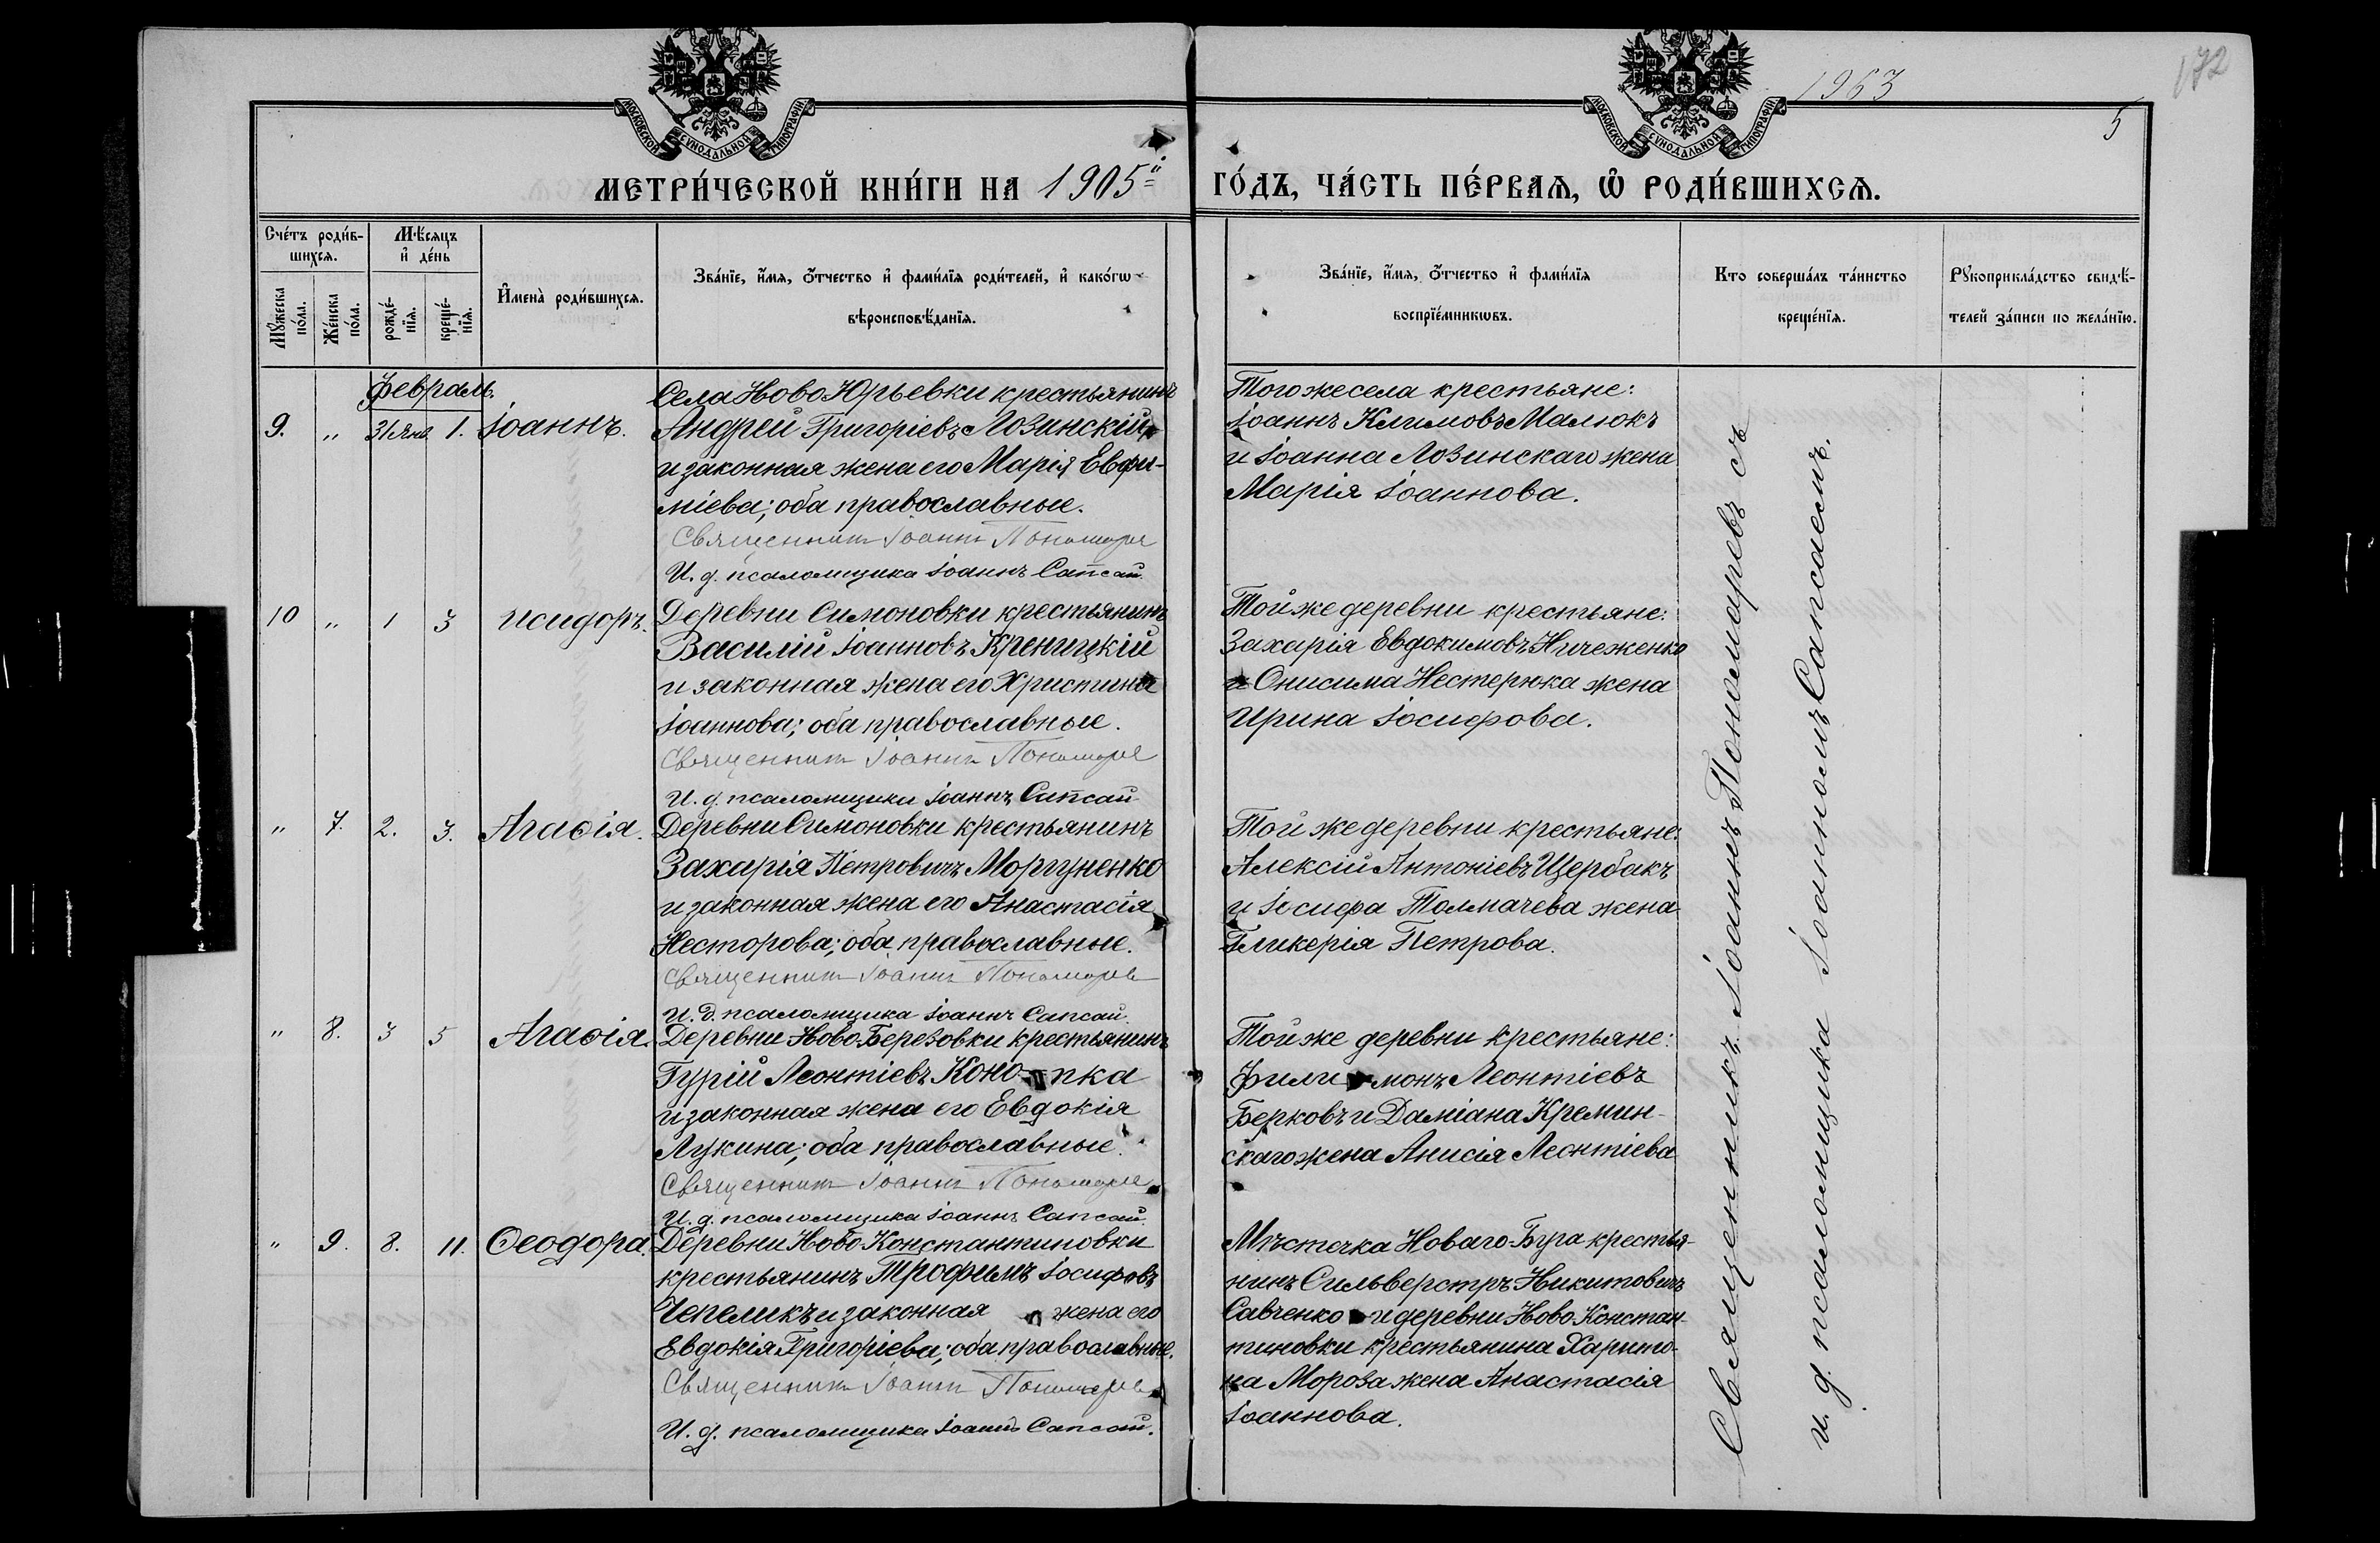 МОСКОВСКОЙ СѴНОДАЛЬНОЙ ТИПОГРАФІИ
МОСКОВСКОЙ СѴНОДАЛЬНОЙ ТИПОГРАФІИ
1963
172
5
МЕТРИ́ЧЕСКОЙ КНИ́ГИ НА 1905й
ГО́ДЪ, ЧА́СТЬ ПЕ́РВАѦ, Ѡ҆ РОДИ́ВШИХСѦ.
Сче́тъ роди́в-
шихсѧ.
Мѣ́сѧцъ
и҆ де́нь
Мꙋ́жеска
по́ла.
Же́нска
по́ла.
рожде́-
нїѧ.
креще́-
нїѧ.
И҆мена̀ роди́вшихсѧ.
Зва́нїе, и҆́мѧ, ѻ҆́тчество и҆ фами́лїѧ роди́телей, и҆ како́гѡ
вѣроисповѣ́данїѧ.
Зва́нїе, и҆́мѧ, ѻ҆́тчество и҆ фами́лїѧ
воспрїе́мникѡвъ.
Кто соверша́лъ та́инство
креще́нїѧ.
Рꙋкоприкла́дство свидѣ́-
телей за́писи по жела́нїю.
Февраль.
9. „ 31 Янв. 1. Іоаннъ.
Села Ново Юрьевки крестьянинъ
Андрей Григоріевъ Лозинскій
и законная жена его Марія Евфи-
міева; оба православные.
Священникъ Іоаннъ Пономарев
И. д. псаломщика Іоаннъ Сапсай.
Того же села крестьяне:
Іоаннъ Климовъ Малюкъ
и Іоанна Лозинскаго жена
Марія Іоаннова.
10 „ 1 3 Исидоръ.
Деревни Симоновки крестьянинъ
Василій Іоанновъ Креницкій
и законная жена его Христина
Іоаннова; оба православные.
Священникъ Іоаннъ Пономарев
И. д. псаломщика Іоаннъ Сапсай
Той же деревни крестьяне:
Захарія Евдокимовъ Ничеженко
и Онисима Нестерюка жена
Ирина Іосифова.
„ 7. 2. 3. Агаѳія.
Деревни Симоновки крестьянинъ
Захарія Петровичъ Моргуненко
и законная жена его Анастасія
Несторова; оба православные.
Священникъ Іоаннъ Пономарев
И. д. псаломщика Іоаннъ Сапсай.
Той же деревни крестьяне:
Алексій Антоніевъ Щербакъ
и Іосифа Толмачева жена
Гликерія Петрова.
„ 8. 3 5 Агаѳія.
Деревни Ново Березовки крестьянинъ
Гурій Леонтіевъ Коно-пка
и законная жена его Евдокія
Лукина; оба православные.
Священникъ Іоаннъ Пономарев
И. д. псаломщика Іоаннъ Сапсай.
Той же деревни крестьяне:
Фили монъ Леонтіевъ
Берковъ и Даміана Кремин-
скаго жена Анисія Леонтіева
„ 9. 8. 11. Ѳеодора.
Деревни Ново Константиновки
крестьянинъ Трофимъ Іосифовъ
Чепеликъ и законная жена его
Евдокія Григоріева; оба православные.
Священникъ Іоаннъ Пономарев
И. д. псаломщика Іоаннъ Сапсай.
Мѣстечка Новаго-Буга крестья-
нинъ Сильверстръ Никитовичъ
Савченко и деревни Ново Констан-
тиновки крестьянина Харито-
на Мороза жена Анастасія
Іоаннова.
Священникъ Іоаннъ Пономаревъ съ
и. д. псаломщика Іоанномъ Сапсаемъ.